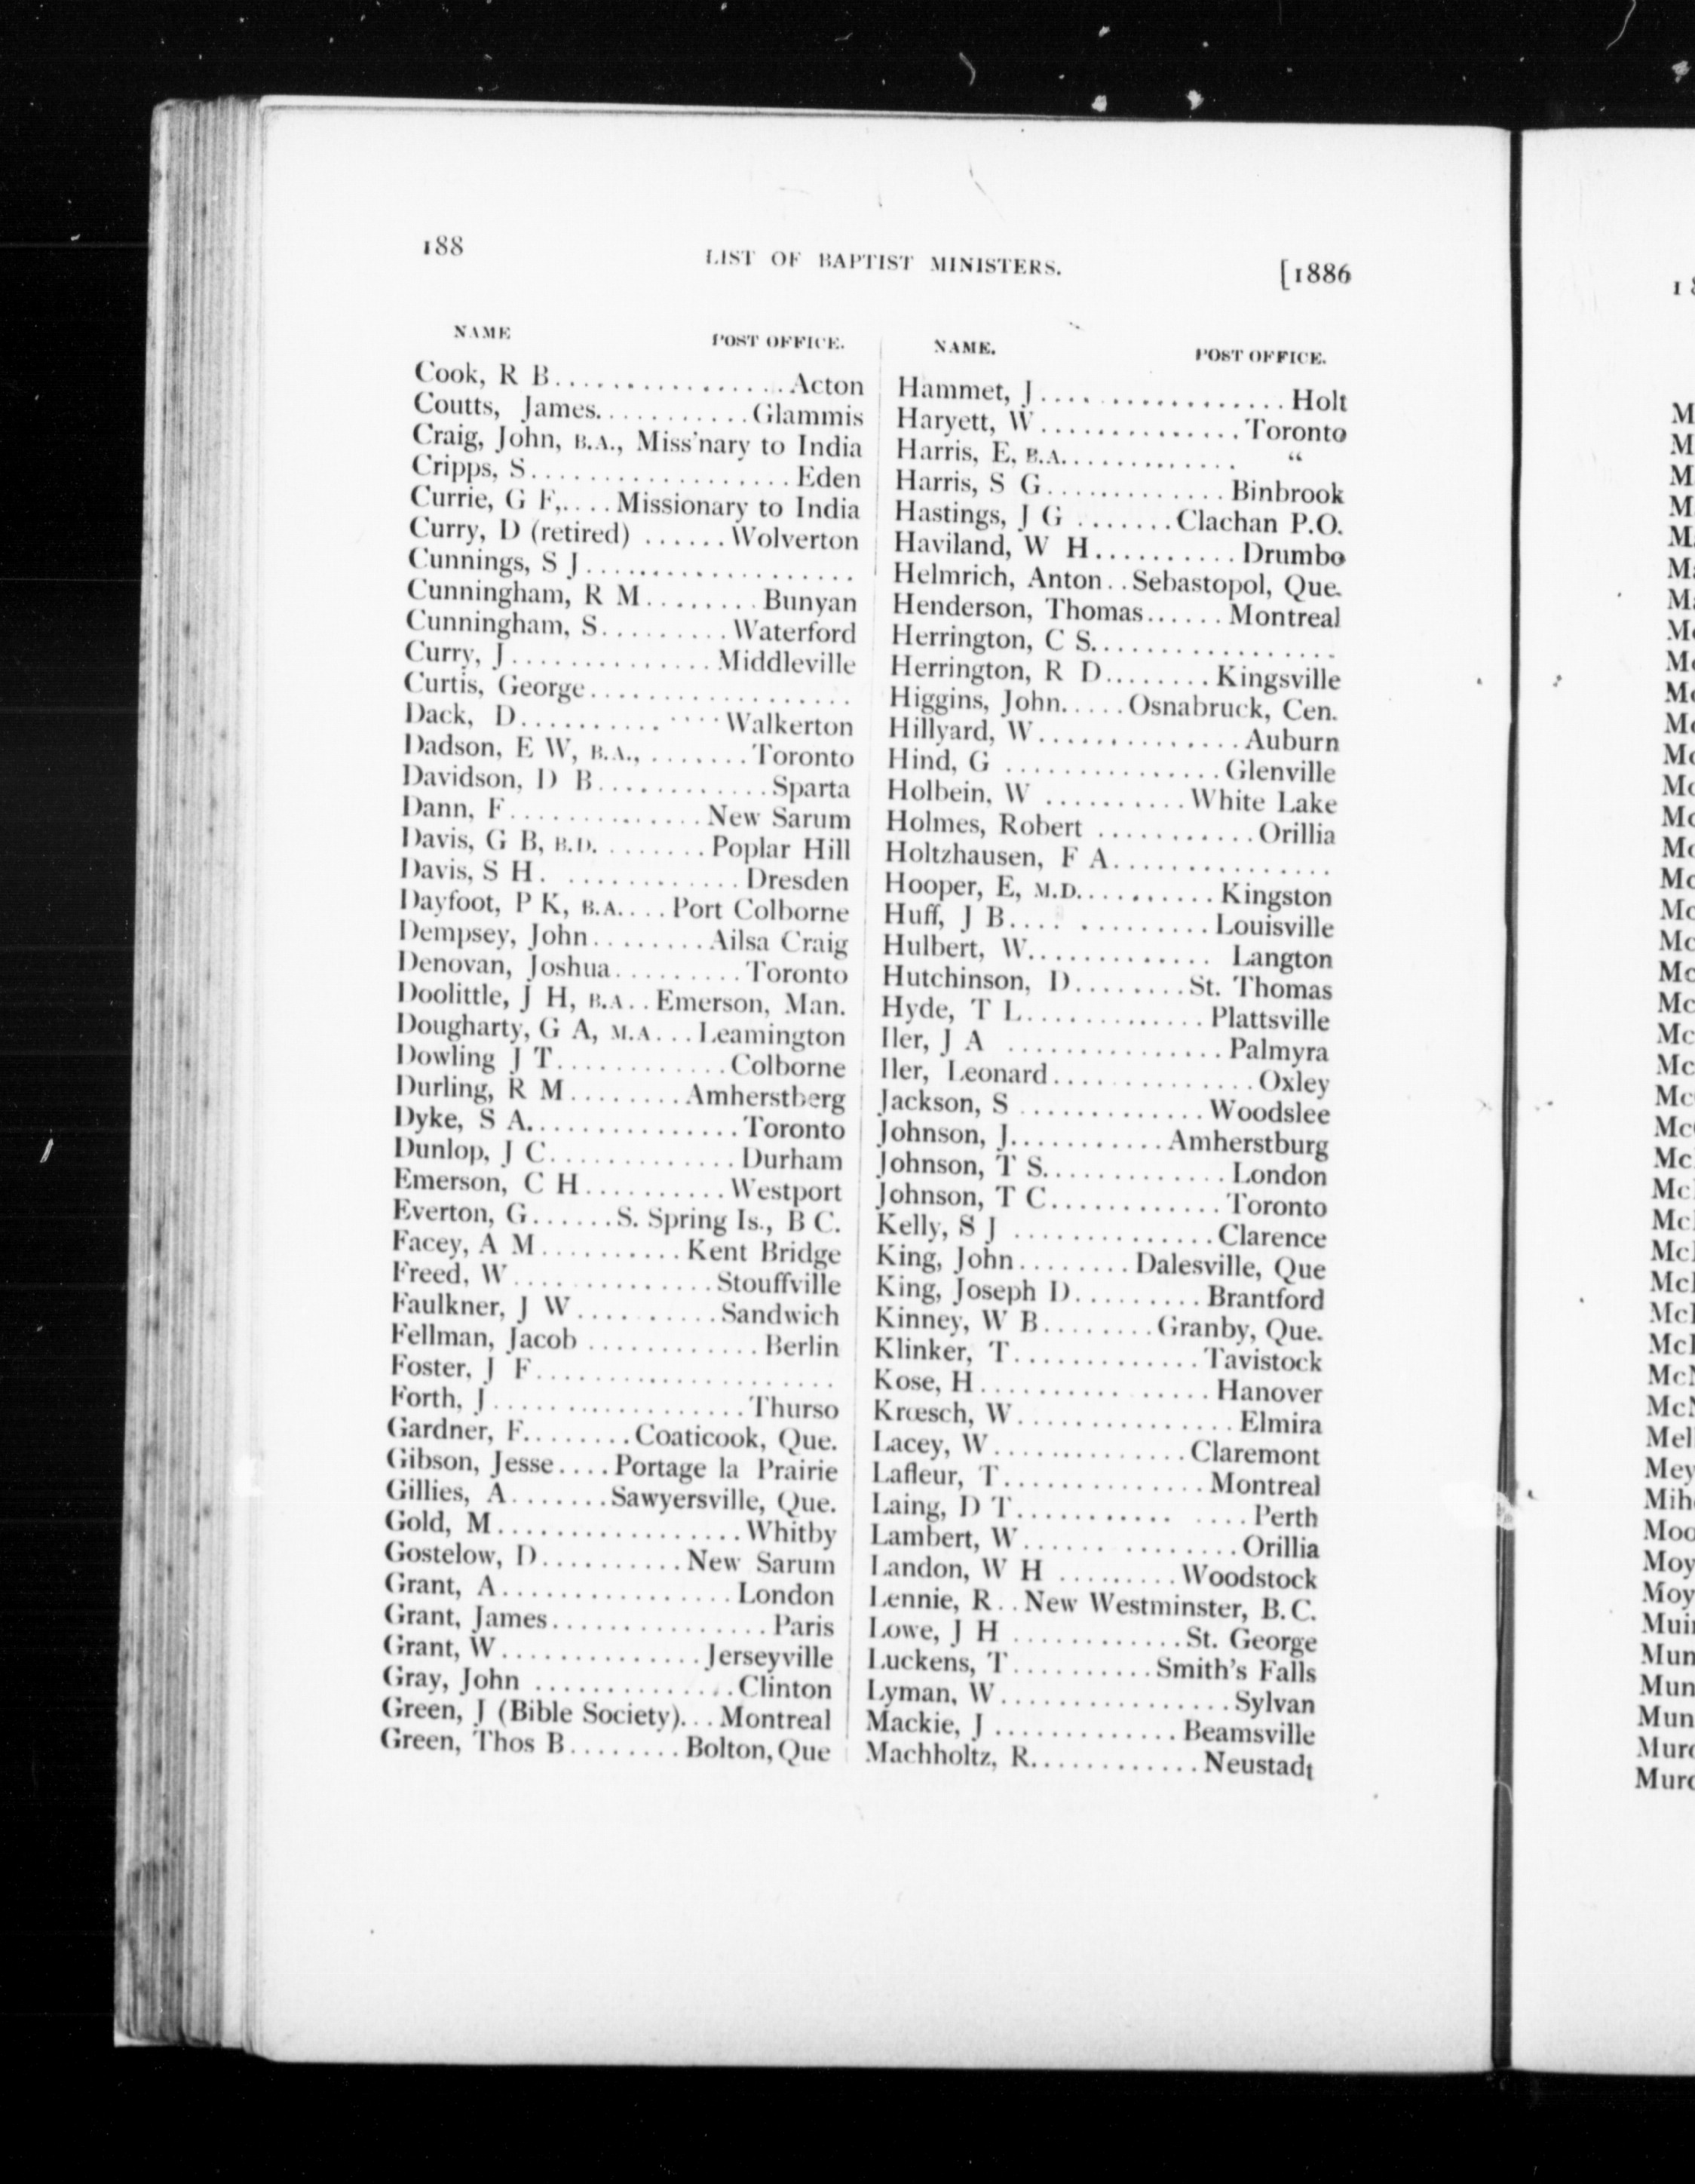 188 LIST OF BAPTIST MINISTERS. [1886
NAME POST OFFICE.
Cook, R B................Acton
Coutts, James...........Glammis
Craig, John, B.A., Miss'nary to India
Cripps, S..................Eden
Currie, G F,....Missionary to India
Curry, D (retired) ......Wolverton
Cunnings, S J...................
Cunningham, R M........Bunyan
Cunningham, S.........Waterford
Curry, J..............Middleville
Curtis, George..................
Dack, D..............Walkerton
Dadson, E W, B.A., .......Toronto
Davidson, D B............Sparta
Dann, F..............New Sarum
Davis, G B, B.D.........Poplar Hill
Davis, S H. .............Dresden
Dayfoot, P K, B.A....Port Colborne
Dempsey, John........Ailsa Craig
Denovan, Joshua.........Toronto
Doolittle, J H, B.A..Emerson, Man.
Dougharty, G A, M.A...Leamington
Dowling J T............Colborne
Durling, R M........Amherstberg
Dyke, S A...............Toronto
Dunlop, J C.............Durham
Emerson, C H..........Westport
Everton, G......S. Spring Is., B C.
Facey, A M..........Kent Bridge
Freed, W..............Stouffville
Faulkner, J W..........Sandwich
Fellman, Jacob ............Berlin
Foster, J F.....................
Forth, J..................Thurso
Gardner, F........Coaticook, Que.
Gibson, Jesse....Portage la Prairie
Gillies, A.......Sawyersville, Que.
Gold, M.................Whitby
Gostelow, D..........New Sarum
Grant, A................London
Grant, James...............Paris
Grant, W..............Jerseyville
Gray, John ..............Clinton
Green, J (Bible Society)...Montreal
Green, Thos B........Bolton, Que
NAME. POST OFFICE.
Hammet, J.................Holt
Haryett, W..............Toronto
Harris, E, B.A............. “
Harris, S G.............Binbrook
Hastings, J G .......Clachan P.O.
Haviland, W H..........Drumbo
Helmrich, Anton..Sebastopol, Que.
Henderson, Thomas......Montreal
Herrington, C S.................
Herrington, R D........Kingsville
Higgins, John.....Osnabruck, Cen.
Hillyard, W..............Auburn
Hind, G ...............Glenville
Holbein, W ..........White Lake
Holmes, Robert ...........Orillia
Holtzhausen, F A...............
Hooper, E, M.D..........Kingston
Huff, J B.... .........Louisville
Hulbert, W............. Langton
Hutchinson, D........St. Thomas
Hyde, T L.............Plattsville
Iler, J A ...............Palmyra
Iler, Leonard..............Oxley
Jackson, S .............Woodslee
Johnson, J...........Amherstburg
Johnson, T S.............London
Johnson, T C............Toronto
Kelly, S J ..............Clarence
King, John........Dalesville, Que
King, Joseph D.........Brantford
Kinney, W B........Granby, Que.
Klinker, T.............Tavistock
Kose, H................Hanover
Krœsch, W...............Elmira
Lacey, W..............Claremont
Lafleur, T..............Montreal
Laing, D T........... ....Perth
Lambert, W...............Orillia
Landon, W H .........Woodstock
Lennie, R..New Westminster, B.C.
Lowe, J H ............St. George
Luckens, T..........Smith's Falls
Lyman, W................Sylvan
Mackie, J .............Beamsville
Machholtz, R............Neustadt